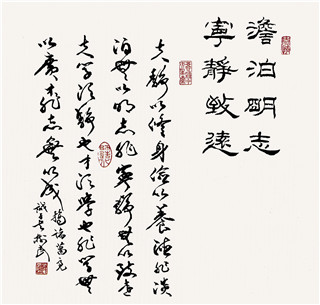 澹泊明志
寧靜致遠
夫靜以修身儉以養德非淡
泊無以明志非寧靜無以致遠
夫學須靜也才須學也非學無
以廣才非志無以成
諸葛亮